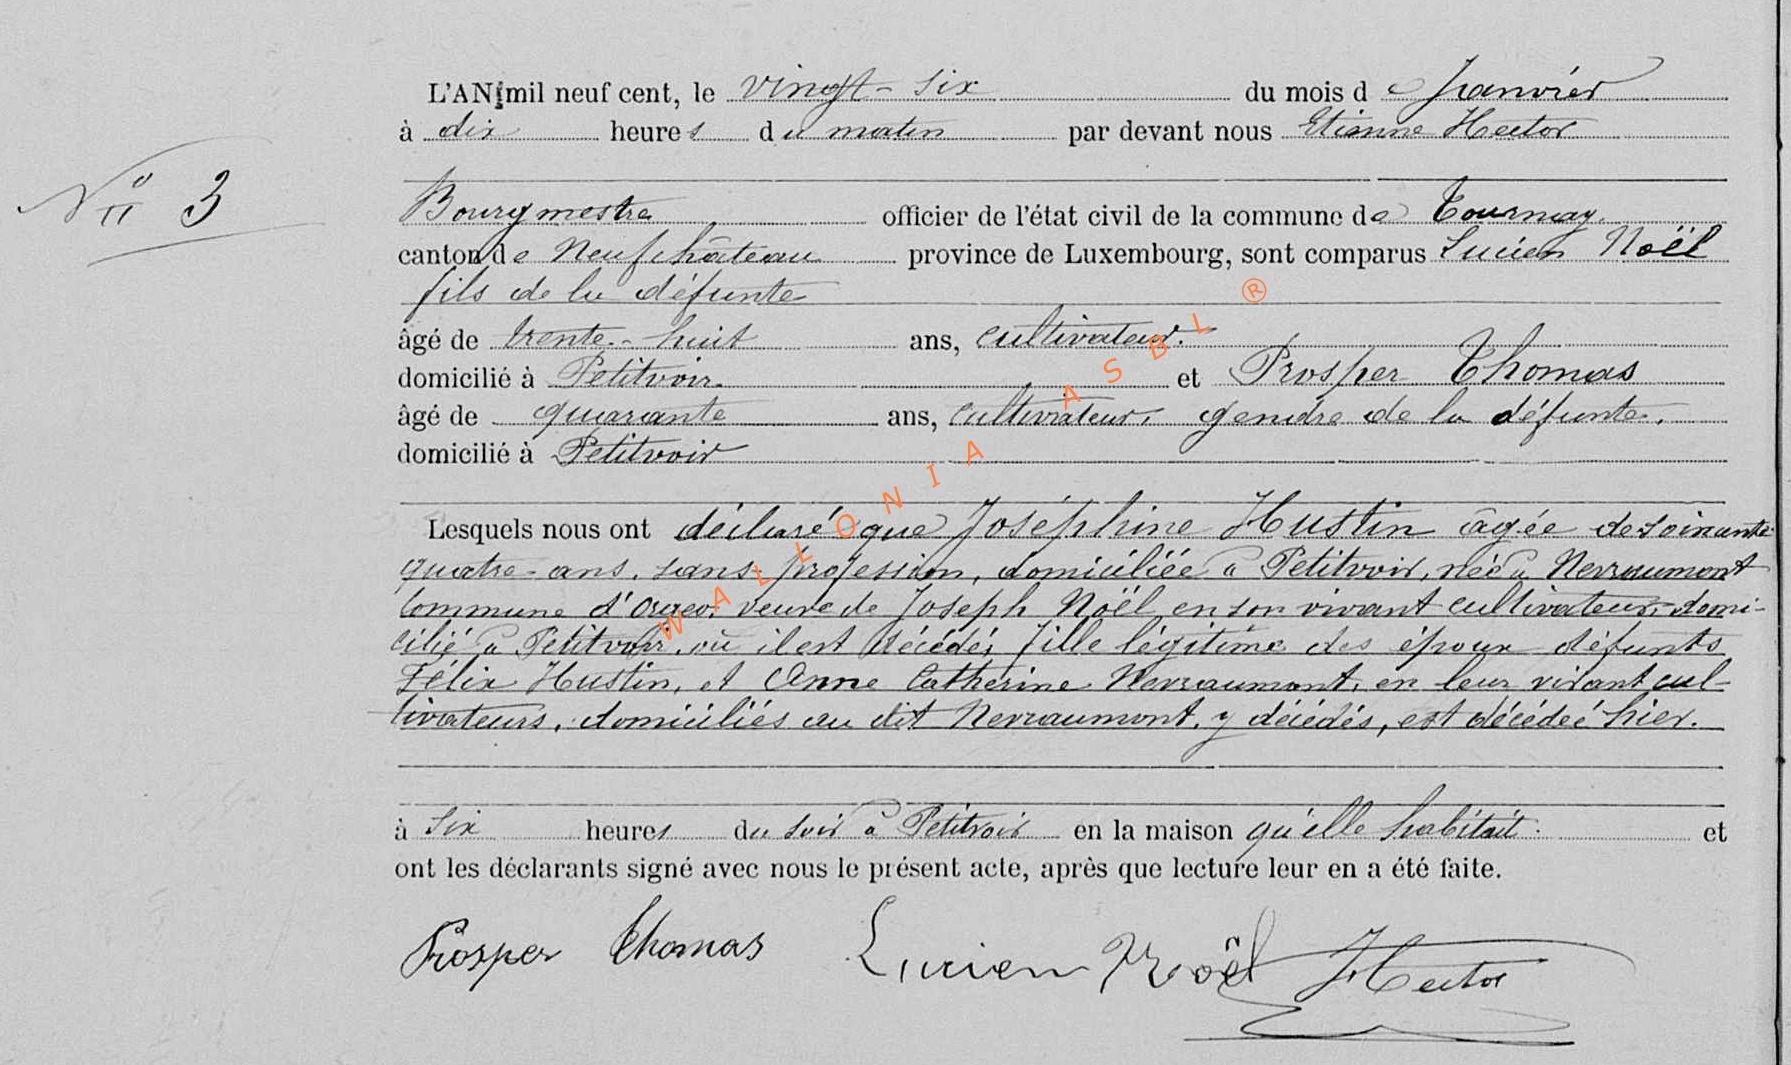 L'AN mil neuf cent, le vingt-six du mois de Janvier
à dix heures du matin par devant nous Etienne Hector
N° 3
Bourgmestre officier de l'état civil de la commune de Tournay
canton de Neufchâteau province de Luxembourg, sont comparus Lucien Noël
fils de la défunte
âgé de trente-huit ans, cultivateur.
domicilié à Petitvoir. et Prosper Thomas
âgé de quarante ans, cultivateur, gendre de la défunte.
domicilié à Petitvoir
Lesquels nous ont déclaré que Joséphine Hustin âgée de soixante
quatre-ans, sans profession, domiciliée à Petitvoir, née à Nevraumont
commune d'Orgeo, veuve de Joseph Noël en son vivant cultivateur, domi-
cilié à Petitvoir, où il est décédé, fille légitime des époux défunts
Félix Hustin, et Anne Catherine Nevraumont, en leur vivant cul-
tivateurs, domiciliés au dit Nevraumont, y décédés, est décédée hier.
à six heures du soir à Petitvoir en la maison qu'elle habitait. et
ont les déclarants signé avec nous le présent acte, après que lecture leur en a été faite.
Prosper Thomas Lucien Noël Hector
WALLONIA ASBL ®